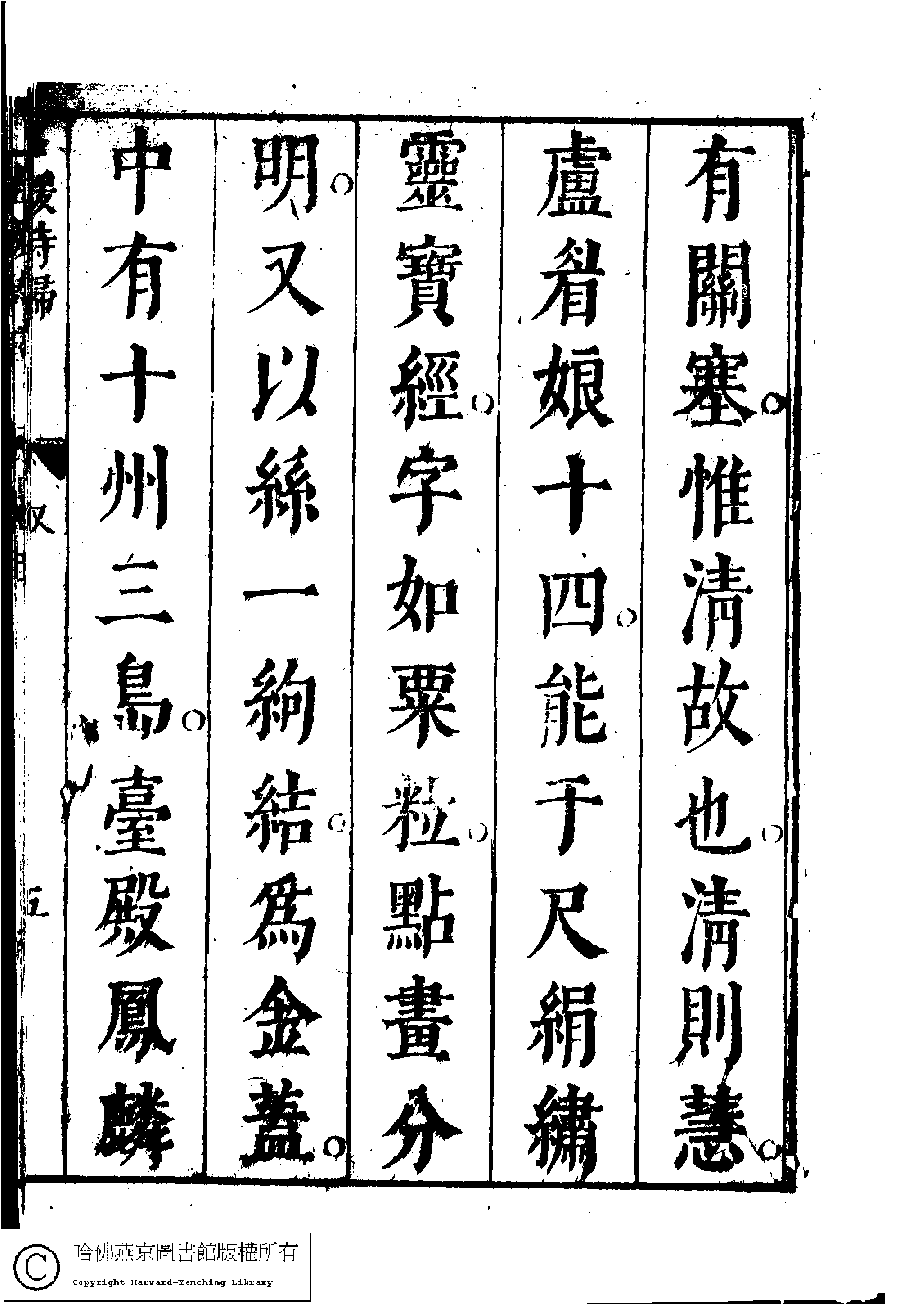 有關塞○惟清故也○清則慧○
盧眉娘十四○能于尺絹繡
靈寶經○字如粟粒○點畫分
明○又以絲一絢結○爲金蓋○
中有十州三島○臺殿鳳麟
媛詩歸
叙
五
哈佛燕京圖書館版權所有
Copyright Harvard-Yenching Library